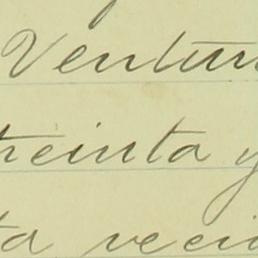 Ventur
treinta y
ta veci